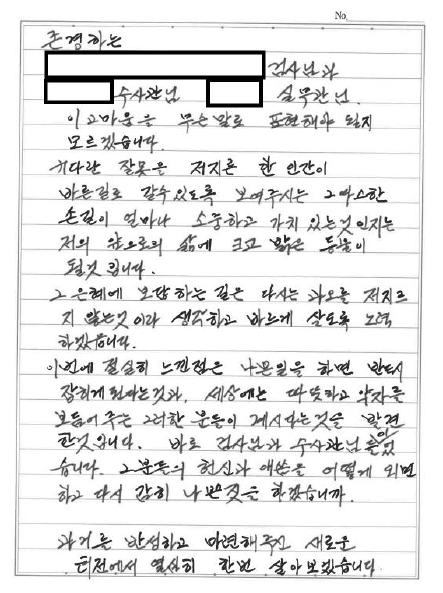 No.
존경하는
검사님과
수사관님 실무관님.
이 고마움을 무슨 말로 표현해야 될지
모르겠습니다.
커다란 잘못을 저지른 한 인간이
바른길로 갈수있도록 보여주시는 그 따스한
손길이 얼마나 소중하고 가치 있는것 인지는
저의 앞으로의 삶에 크고 밝은 등불이
될것 입니다.
그 은혜에 보답하는 길은 다시는 과오를 저지르
지 않는것 이라 생각하고 바르게 살도록 노력
하겠습니다.
이번에 절실히 느낀점은 나쁜일을 하면 반드시
잡히게 된다는것과, 세상에는 따뜻하고 약자를
보듬어 주는 그러한 분들이 계시다는것을 발견
한것입니다. 바로 검사님과 수사관님 들이었
습니다. 그분들의 헌신과 애씀을 어떻게 외면
하고 다시 감히 나쁜짓을 하겠습니까.
과거를 반성하고 마련해주신 새로운
터전에서 열심히 한번 살아보겠습니다